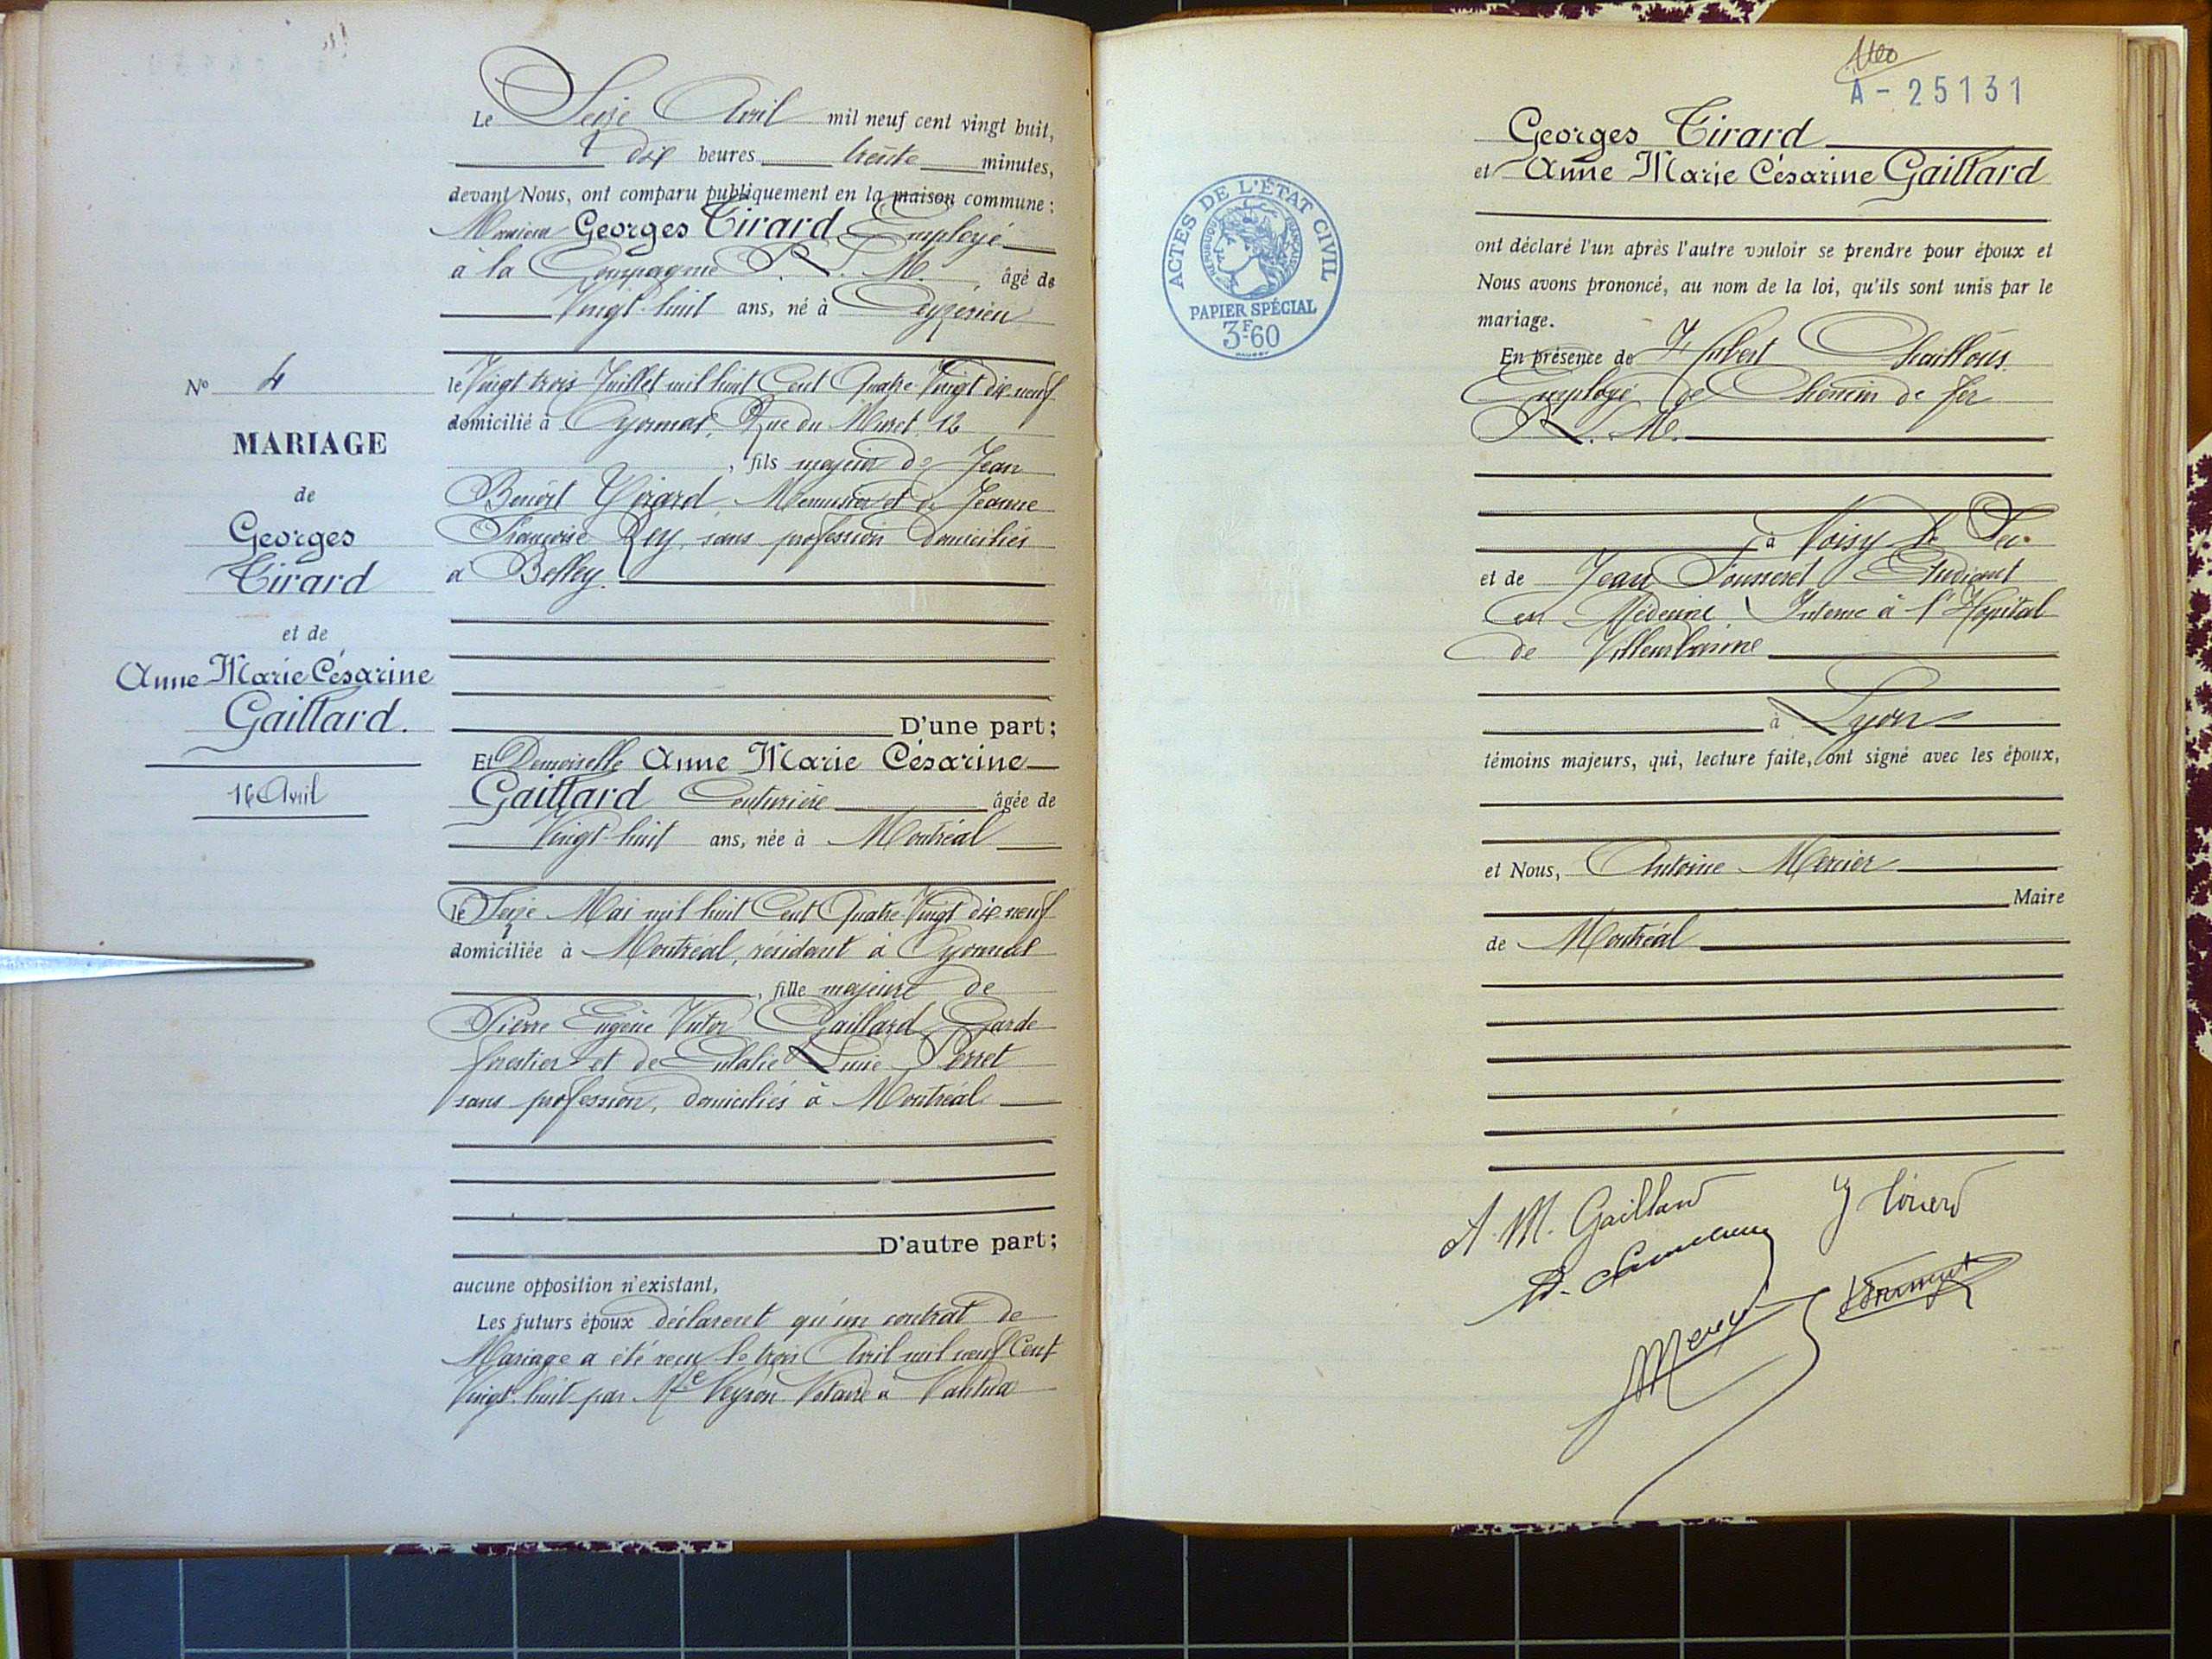 Le Seize Avril mil neuf cent vingt huit,
dix heures trente minutes,
devant Nous, ont comparu publiquement en la maison commune :
Monsieur Georges Tirard Employé
à la Compagnie P. L. M. âgé de
Vingt-huit ans, né à Ceyzérieu
le Vingt trois Juillet mil huit Cent Quatre Vingt dix-neuf
domicilié à Oyonnax, Rue du Muret, 12
, fils majeur de Jean
Benoît Tirard, Menuisier et de Jeanne
Françoise Rey, sans profession domiciliés
à Belley.
D'une part ;
Et Demoiselle Anne Marie Césarine
Gaillard Couturière âgée de
Vingt-huit ans, née à Montréal
le Seize Mai mil huit Cent Quatre Vingt dix-neuf
domiciliée à Montréal, résidant à Oyonnax
, fille majeure de
Pierre Eugène Victor Gaillard Garde
forestier et de Eulalie Lucie Perret
sans profession, domiciliés à Montréal
D'autre part ;
aucune opposition n'existant,
Les futurs époux déclarent qu'un contrat de
Mariage a été reçu le trois Avril mil neuf Cent
Vingt-huit par Me Veyron Notaire à Nantua
N° 4
MARIAGE
de
Georges
Tirard
et de
Anne Marie Césarine
Gaillard.
16 Avril
A - 25131
Georges Tirard
et Anne Marie Césarine Gaillard
ont déclaré l'un après l'autre vouloir se prendre pour époux et
Nous avons prononcé, au nom de la loi, qu'ils sont unis par le
mariage.
En présence de
Employé de Chemin de fer
P. L. M.
à Noisy le Sec
et de Jean Etudiant
en Médecine, Interne à l'Hôpital
de Villeurbanne
à Lyon
témoins majeurs, qui, lecture faite, ont signé avec les époux,
et Nous, Antoine Mercier
Maire
de Montréal
A. M. Gaillard
G Tirard
ACTES DE L'ÉTAT CIVIL
RÉPUBLIQUE FRANÇAISE
PAPIER SPÉCIAL
3F60